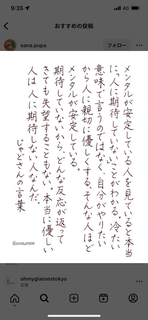 9:35
おすすめの投稿
sana.pupo
フォロー
メンタルが安定している人を見ていると本当
に、人に期待してないことがわかる。冷たい
意味で言うのではなく、自分がやりたい
から人に親切に優しくする。そんな人ほど
メンタルが安定している。
期待していないから、どんな反応が返って
きても失望することもない。本当に優しい
人は人に期待しない人なんだ。
じゅどさんの言葉
ohmyglassestokyo